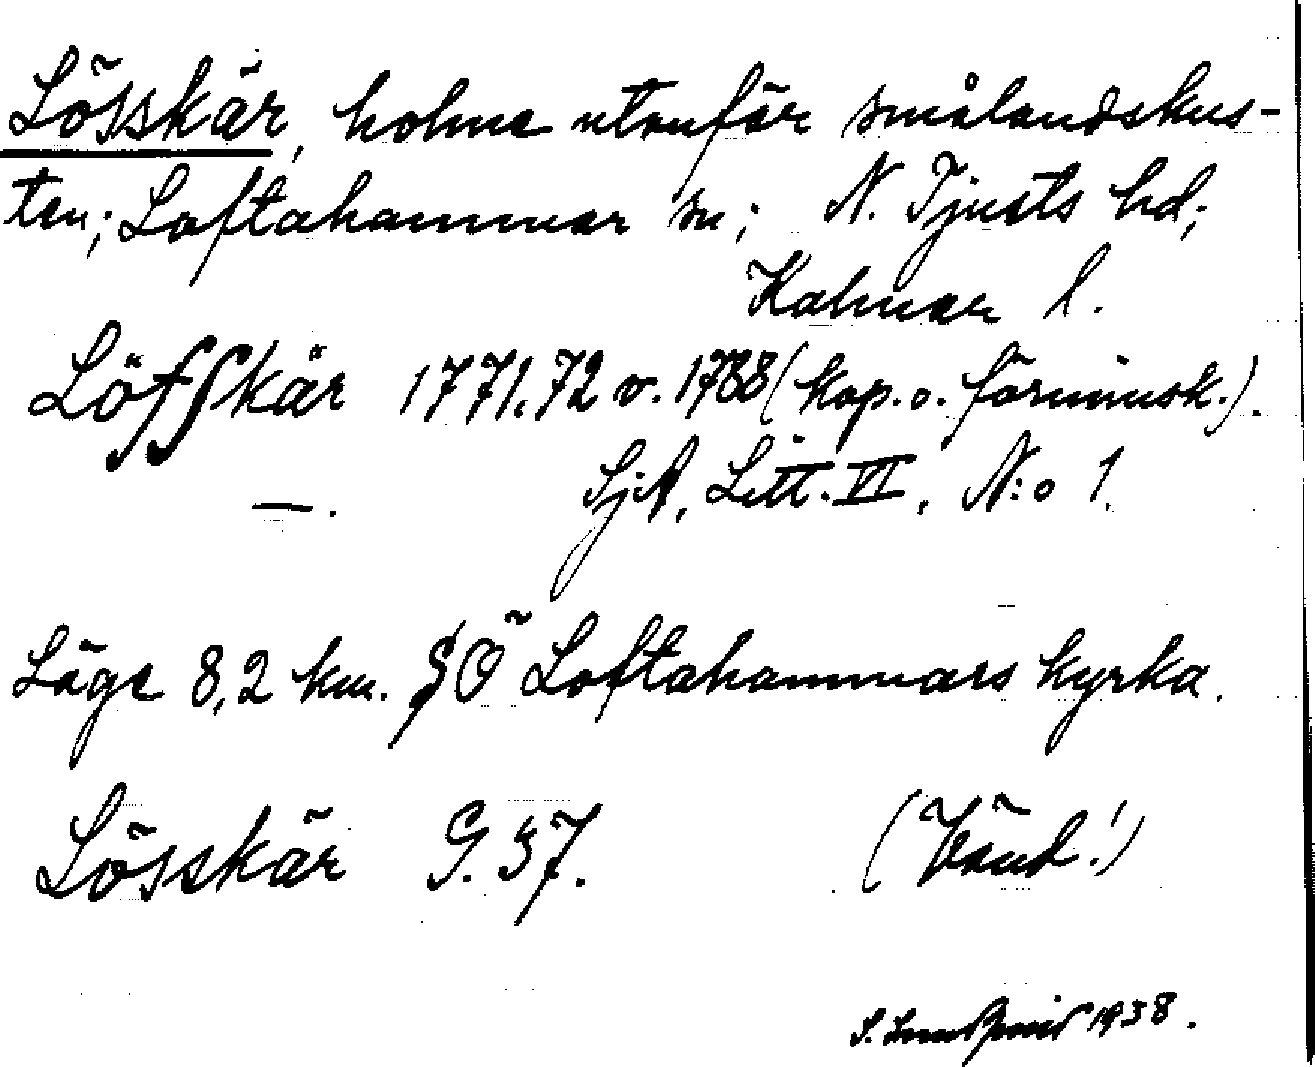 Lösskär, holme utanför smålandskus-
ten; Loftahammar sn; N. Tjusts hd;
Kalmar l.
Löfſkär 1771.72 o. 1788 (kop. o. förminsk.).
—. SjA, Litt. VI, N:o 1.
Läge 8,2 km. SÖ Loftahammars kyrka.
Lösskär G. 37. (Vänd!)
S. 1938.